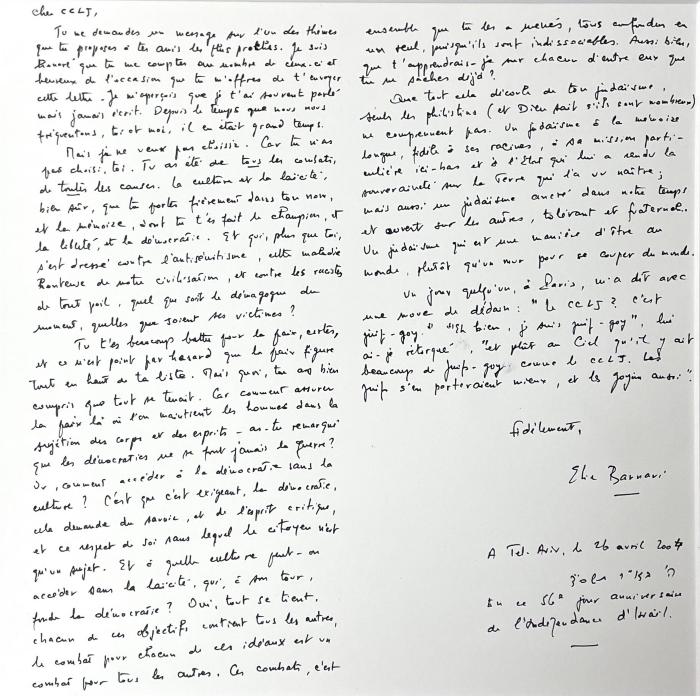 Cher CCLJ,
Tu me demandes un message sur l'un des thèmes
que tu proposes à tes amis les plus proches. Je suis
honoré que tu me comptes au nombre de ceux-ci et
heureux de l'occasion que tu m'offres de t'envoyer
cette lettre. Je m'aperçois que je t'ai souvent parlé
mais jamais écrit. Depuis le temps que nous nous
fréquentons, toi et moi, il en était grand temps.
Mais je ne veux pas choisir. Car tu n'as
pas choisi, toi. Tu as été de tous les combats,
de toutes les causes. La culture et la laïcité,
bien sûr, que tu portes fièrement dans ton nom,
et la mémoire, dont tu t'es fait le champion, et
la liberté, et la démocratie. Et qui, plus que toi,
s'est dressé contre l'antisémitisme, cette maladie
honteuse de notre civilisation, et contre les racistes
de tout poil, quel que soit le démagogue du
moment, quelles que soient ses victimes ?
Tu t'es beaucoup battu pour la paix, certes,
et ce n'est point par hasard que la paix figure
tout en haut de ta liste. Mais quoi, tu as bien
compris que tout se tenait. Car comment assurer
la paix là où l'on maintient les hommes dans la
sujétion des corps et des esprits – as-tu remarqué
que les démocraties ne se font jamais la guerre ?
Or, comment accéder à la démocratie sans la
culture ? C'est que c'est exigeant, la démocratie,
cela demande du savoir, et de l'esprit critique,
et ce respect de soi sans lequel le citoyen n'est
qu'un sujet. Et à quelle culture peut-on
accéder sans la laïcité, qui, à son tour,
fonde la démocratie ? Oui, tout se tient,
chacun de ces objectifs contient tous les autres,
le combat pour chacun de ces idéaux est un
combat pour tous les autres. Ces combats, c'est
ensemble que tu les a menés, tous confondus en
un seul, puisqu'ils sont indissociables. Aussi bien,
que t'apprendrais-je sur chacun d'entre eux que
tu ne saches déjà ?
Que tout cela découle de ton judaïsme,
seuls les philistins (et Dieu sait s'ils sont nombreux)
ne comprennent pas. Un judaïsme à la mémoire
longue, fidèle à ses racines, à sa mission parti-
culière ici-bas et à l'Etat qui lui a rendu la
souveraineté sur la Terre qui l'a vu naître ;
mais aussi un judaïsme ancré dans notre temps
et ouvert sur les autres, tolérant et fraternel.
Un judaïsme qui est une manière d'être au
monde, plutôt qu'un mur pour se couper du monde.
Un jour quelqu'un, à Paris, m'a dit avec
une moue de dédain : "Le CCLJ ? C'est
juif-goy." "Eh bien, je suis juif-goy", lui
ai-je rétorqué, "et plût au Ciel qu'il y ait
beaucoup de juifs-goy comme le CCLJ. Les
Juifs s'en porteraient mieux, et les goyim aussi."
Fidèlement,
Elie Barnavi
A Tel-Aviv, le 26 avril 2004
ה' באייר
En ce 56e jour anniversaire
de l'Indépendance d'Israël.